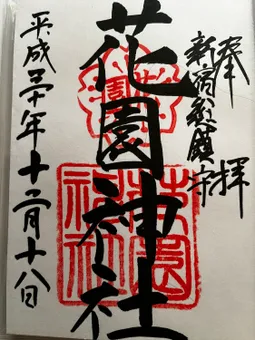 奉拝
新宿総鎮守
花園神社
花園神社
平成三十年十二月十八日